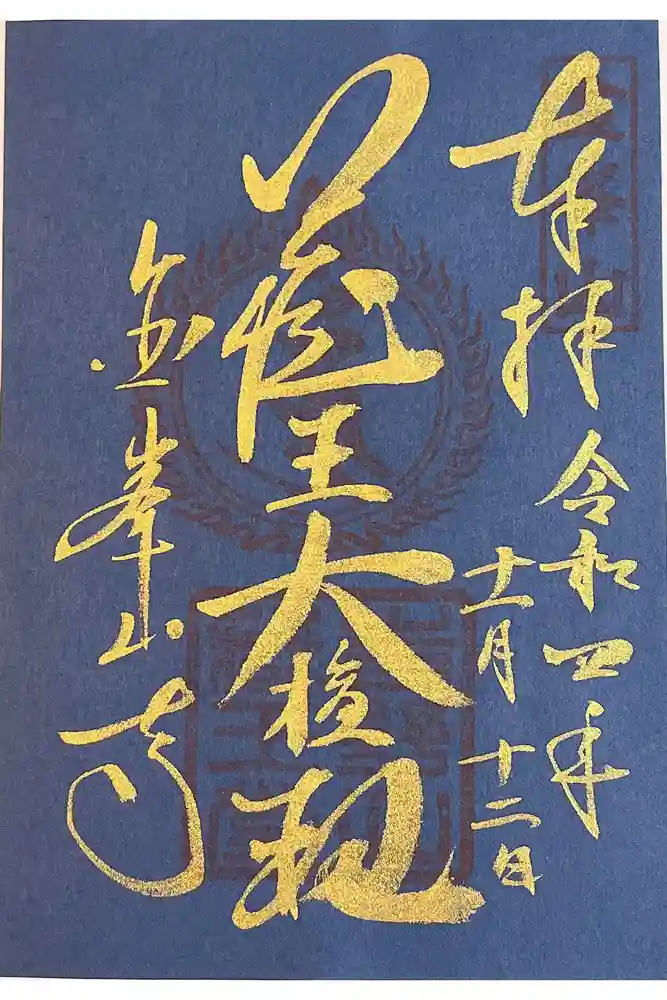 奉拝
令和四年
十一月十二日
蔵王大権現
金峯山寺